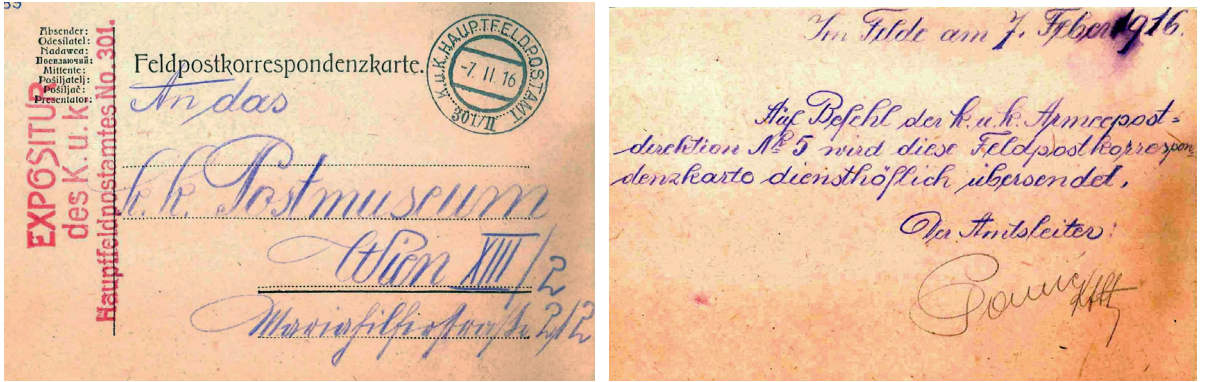 59
Absender:
Odesílatel:
Nadawca:
Посилаючий:
Mittente:
Pošiljatelj:
Pošiljač:
Presentator:
EXPOSITUR
des K. u. k.
Hauptfeldpostamtes No. 301.
Feldpostkorrespondenzkarte.
K.u.K. HAUPTFELDPOSTAMT
-7. II 16
301/II
An das
k. k. Postmuseum
Wien XIII/2
Mariahilferstraße 212
Im Felde am 7. Feber 1916.
Auf Befehl der k. u. k. Armeepost=
direktion No 5 wird diese Feldpostkorrespon
denzkarte diensthöflich übersendet.
Der Amtsleiter: